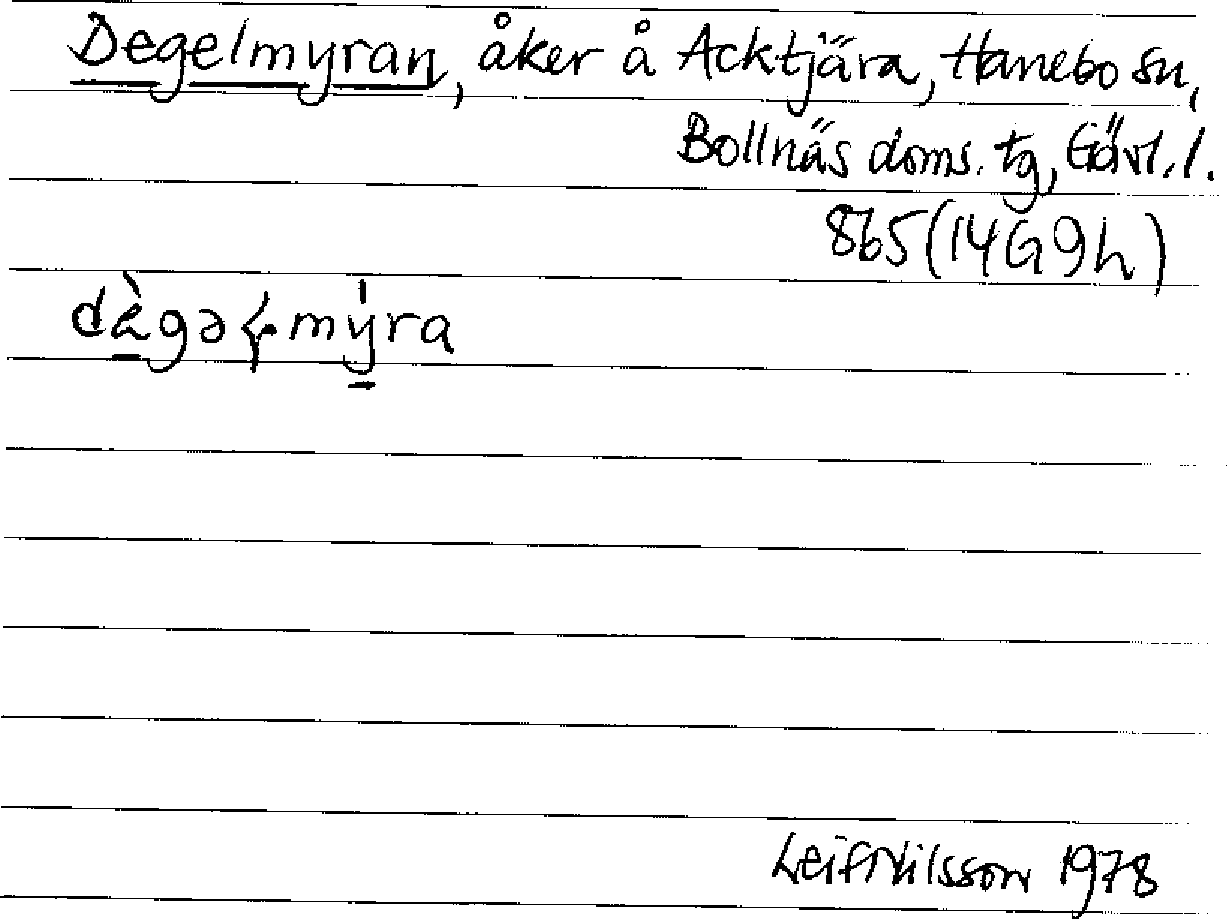 Degelmyran, åker å Acktjära, Hanebo sn,
Bollnäs doms. tg, Gävl. l.
865 (14G9h)
myra
Leif Nilsson 1978